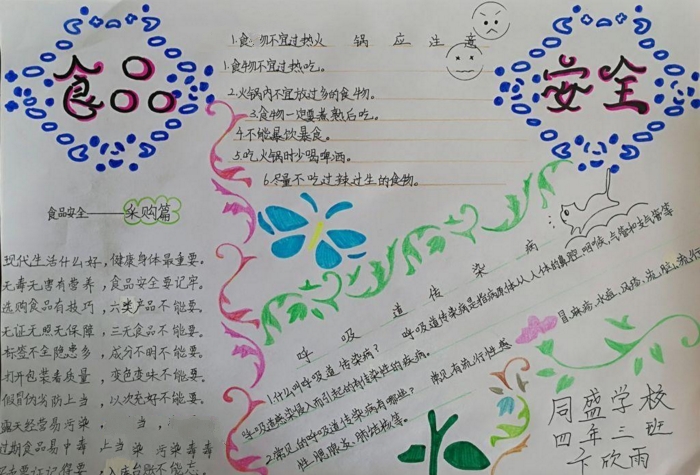 食品
安全
1.食物不宜过热火 锅 应 注 意
1.食物不宜过热吃。
2.火锅内不宜放过多的食物。
3.食物一定要煮熟后吃。
4.不能暴饮暴食。
5.吃火锅时少喝啤酒。
6.尽量不吃过辣过生的食物。
食品安全——采购篇
现代生活什么好，健康身体最重要。
无毒无害有营养，食品安全要记牢。
选购食品有技巧，六类产品不能要。
无证无照无保障，三无食品不能要。
标签不全隐患多，成分不明不能要。
打开包装看质量，变色变味不能要。
假冒伪劣防上当，以次充好不能要。
露天经营易污染，当，
过期食品易中毒 上当 染 污染 毒毒
呼 吸 道 传 染 病
1.什么叫呼吸道传染病？ 呼吸道传染病是指病原体从人体的鼻腔、咽喉、气管和支气管等
呼吸道感染侵入而引起的有传染性的疾病。
2.常见的呼吸道传染病有哪些？ 常见有流行性感
冒、麻疹、水痘、风疹、流
性腮腺炎、肺结核等。
同盛学校
四年三班
卞欣雨